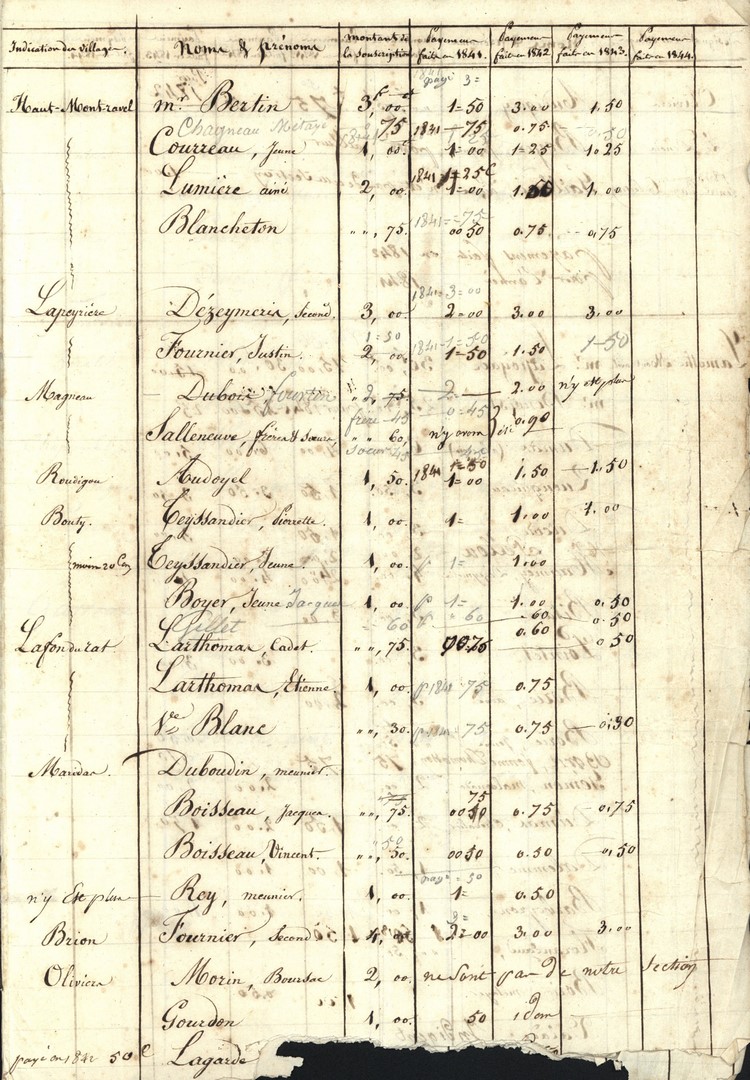 Indication des villages. Noms & prénoms montant de la souscription Payement fait en 1841. Payement fait en 1842 Payement fait en 1843. Payement fait en 1844.
payé 3=
Haut-Montravel mr. Bertin 3f, 00c 1=50 3.00 1.50
Chagneau Métayer 75 1841 — 75 0.75 0.50
Courreau, Jeune 1, 00c 1=00 1=25 1.25
1841 1=25c
Lumière ainé 2, 00. 1=00 1.50 1.00
1841=75
Blancheton ", 75. 00 50 0.75 0,75
1841=3=00
Lapeyrière Dézeymeris, Second. 3, 00. 2=00 3.00 3.00
1=50 1841-1=50
Fournier, Justin. 2, 00. 1=50 1.50 1-50
Magneau Dubois 2, 75. 2 2.00 n'y est plus
frère-45 0=45
Salleneuve, frères & Soeurs, " 60, n'y avons été 0.90
Soeur 45
Roudigou Audoyel 1, 50. 1841 1=50 1=00 1.50 1.50
Bouty. Teyssandier, Pierrette. 1, 00. 1= 1.00 1.00
moin 20 Cen Teyssandier, Jeune. 1, 00. p 1= 1.00
Boyer, Jeune Jacques 1, 00. p 1= 1.00 0.50
Pellet 60 60 60 0.50
Lafondurat Larthomas, Cadet. ", 75. 00 75 0.60 0 50
Larthomas, Etienne. 1, 00. p 1841 75 0.75
Vve Blanc ", 30. p 1841 75 0.75 0.30
Maridas. Duboudin, meunier.
75
Boisseau, Jacques. ", 75. 00 50 0.75 0.75
50
Boisseau, Vincent. ", 50. 00 50 0.50 0.50
payé = 50
n'y Est plus Roy, meunier. 1, 00. 1= 0.50
3=
Brion Fournier, Second 4, 00 2=00 3.00 3.00
Oliviers Morin, Boursac 2, 00. ne Sont pas de notre Section
Gourdon 1, 00. 50 idem
payé en 1842 50c Lagarde